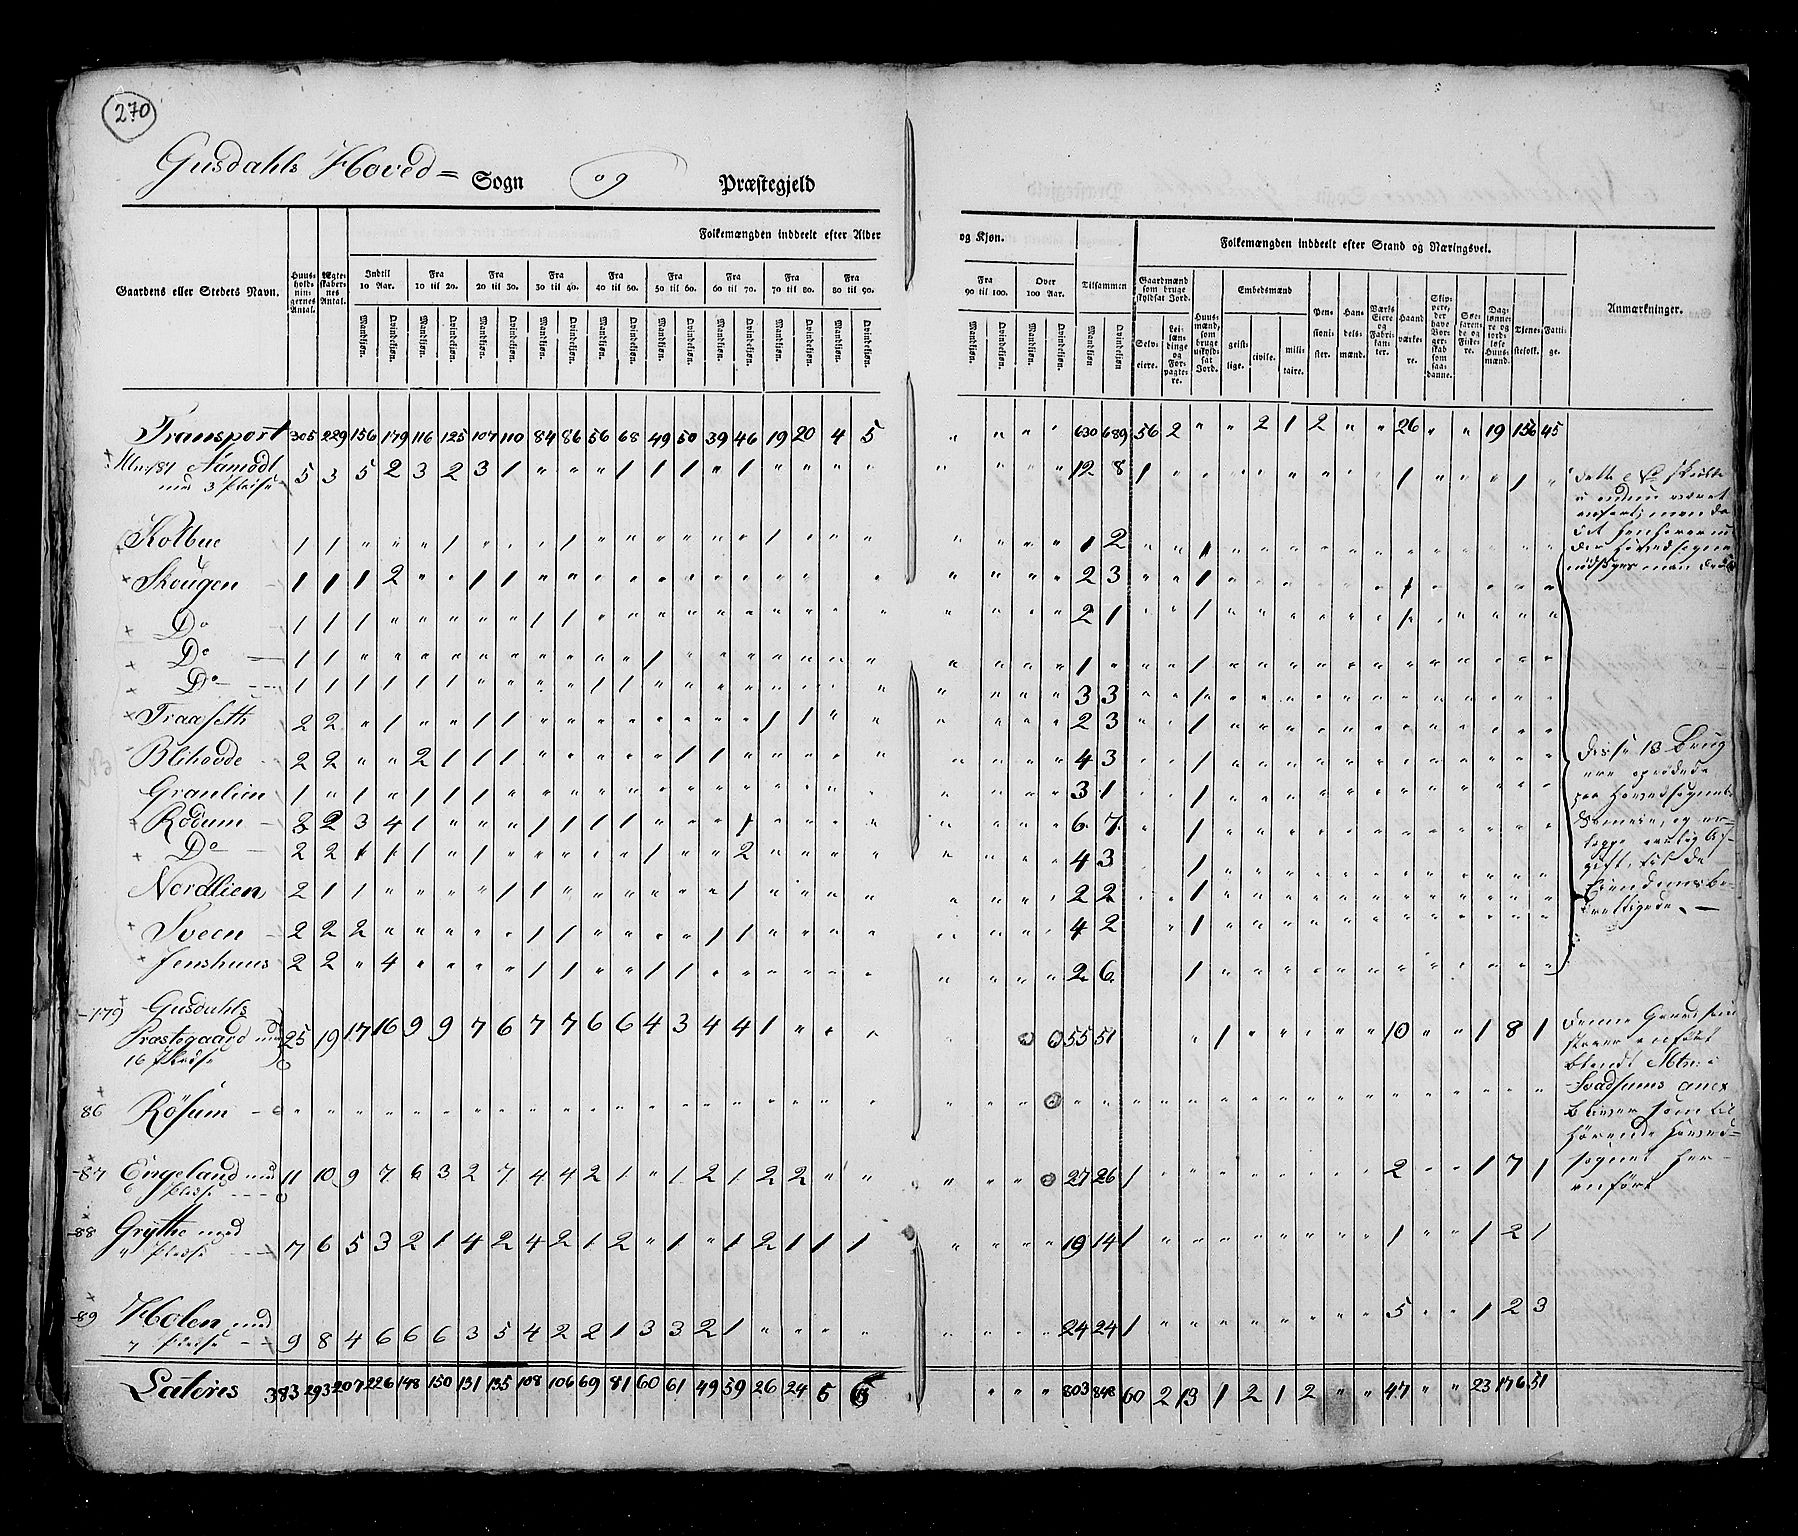 270
Gusdahls Hoved= Sogn og Præstegjeld
Folkemængden inddeelt efter Alder og Kjøn.
Folkemængden inddeelt efter Stand og Næringsvei.
Gaardens eller Stedets Navn.
Huusholdningernes Antal.
Ægteskabernes Antal.
Indtil 10 Aar.
Fra 10 til 20.
Fra 20 til 30.
Fra 30 til 40.
Fra 40 til 50.
Fra 50 til 60.
Fra 60 til 70.
Fra 70 til 80.
Fra 80 til 90.
Fra 90 til 100.
Over 100 Aar.
Tilsammen
Mandkjøn. Qvindekjøn.
Gaardmænd som bruge skyldsat Jord.
Selveiere.
Leilændinge og Forpagtere.
Huusmænd, som bruge uskyldsat Jord.
Embedsmænd
geistlige.
civile.
militaire.
Pensionister.
Handelsmænd.
Værks Eiere og Fabrikanter.
Haandværkere.
Skippere, der have Borgerskab som saadanne.
Søefarende og Fiskere.
Daglønnere og jordløse Huusmænd.
Tjenestefolk.
Fattige.
Anmærkninger.
Transport 305 229 156 179 116 125 107 110 84 86 56 68 49 50 39 46 19 20 4 5 " " " " 630 689 56 2 " " 2 1 2 " " 26 " " 19 156 45
Aamodt 5 3 5 2 3 2 3 1 " " " 1 1 1 " 1 " " " " 12 8 1 1 1
med 3 Pladse
Kolbue 1 1 " " " 1 " " " 1 " " " " " " 1 " " " 1 2 " " 1
Skougen 1 1 1 2 " " 1 1 " " " " " " " " " " " " 2 3 " " 1 1
Do 1 1 1 1 " " " " 1 1 2 1 " " 1 1
Do 1 1 " " " " " " " " " " 1 " 1 " " " 1
Do 1 1 1 1 1 1 " " " " 1 1 3 3 " " 1
Traaseth 2 2 " 1 " " 1 1 " " " " " " " " 1 1 " " 2 3 " " 1
Blihovde 2 2 " " 2 1 1 1 " " " " " 1 1 4 3 1
Granlien 1 " 1 " 1 1 1 3 1 1
Rödum 2 2 3 4 1 " " " 1 1 1 1 " " " 1 6 7 1
Do 2 2 1 1 1 " 1 " " " " " 1 " " 2 4 3 1
Nordlien 2 1 1 " " " " 1 1 " " " " " " 1 2 2 1
Sveen 2 2 2 " " " " " 1 1 " " " " 1 1 4 2 1
Jenshuus 2 2 " 4 " " " " 1 1 " " 1 1 2 6 1
179 Gusdahls
Præstegaard med 25 19 17 16 9 9 7 6 7 7 6 6 4 3 4 4 1 " " " 55 51 " 1 " " " " " 10 " " 1 8 1
16 Pladse
86 Rösum
87 Engeland med 11 10 9 7 6 3 2 7 4 4 2 1 " 1 2 1 2 2 " " 27 26 1 2 " " 1 7 1
Pladse
88 Grythe med 7 6 5 3 2 1 4 2 4 2 1 2 " 1 " 1 2 1 1 1 19 14 1 1 " " 1 2 1
" Pladse
89 Holen med 9 8 4 6 6 6 3 5 4 2 2 1 3 3 2 1 " " " " 24 24 1 5 " " 1 2 3
7 Pladse
Lateris 383 293 207 226 148 150 131 135 108 106 69 81 60 61 49 59 26 24 5 6 " " " 803 848 60 2 13 1 2 1 2 " " 47 " " 23 176 51
dette No skulde
endnu været
anført; men da
det henhører un
der Hovedsognet
disse 13 Brug
ere oprødede
paa Hovedsognets
til de
Eiendomsbe-
rettigede. —
denne Gaard som
staaer anført
blandt Mtr: i
Svadsums anex
bliver som til
hørende Hoved=
sognet her
anført